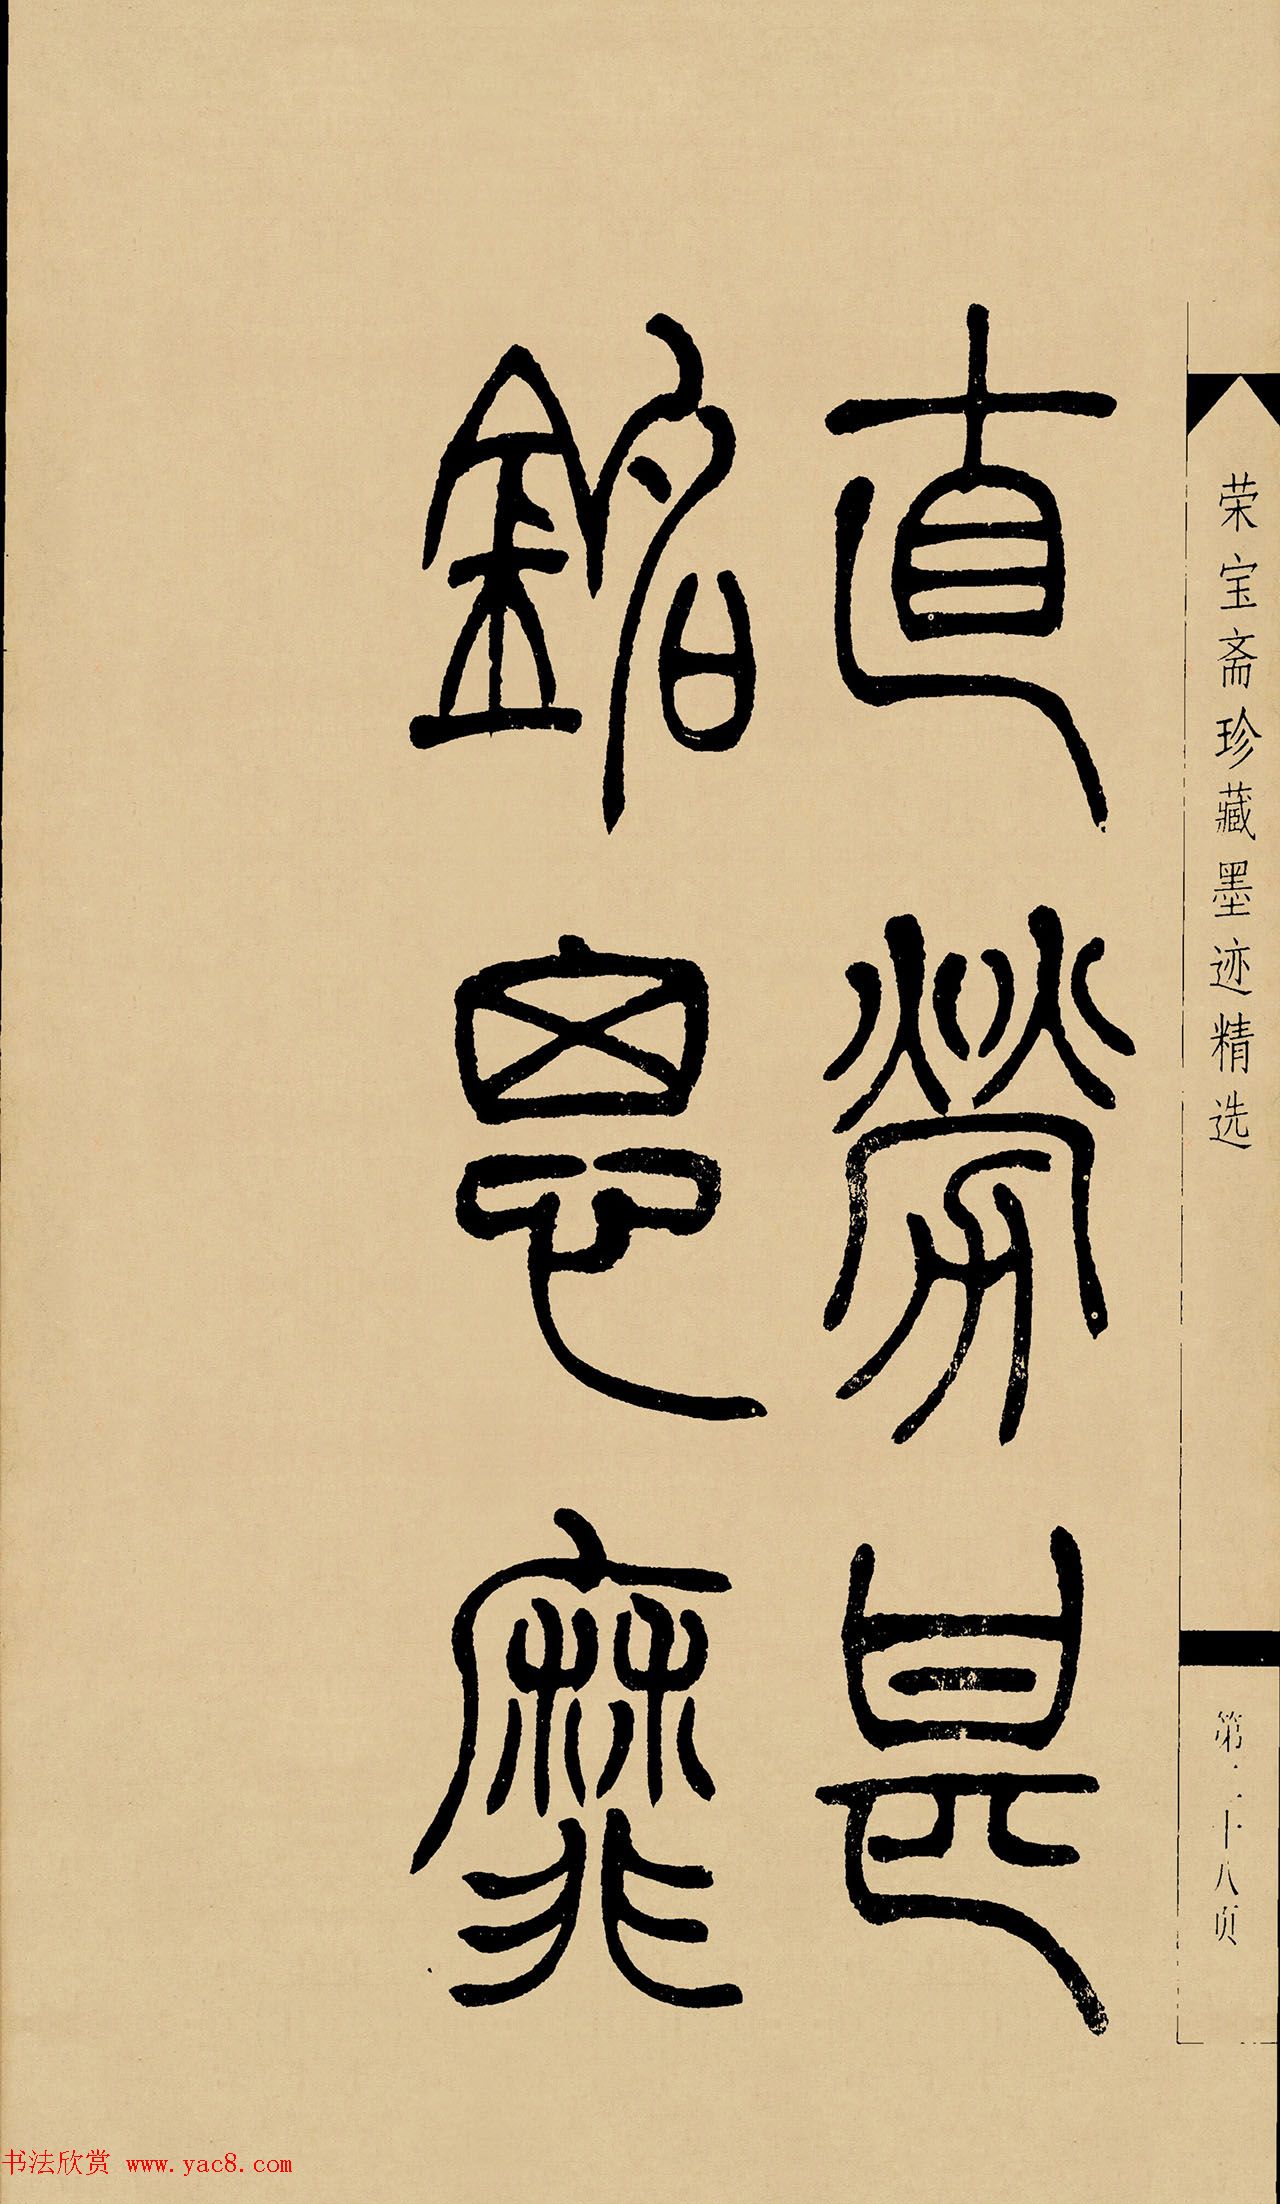 荣宝斋珍藏墨迹精选
第十八页
直勞甚
銘思靡
书法欣赏 www.yac8.com